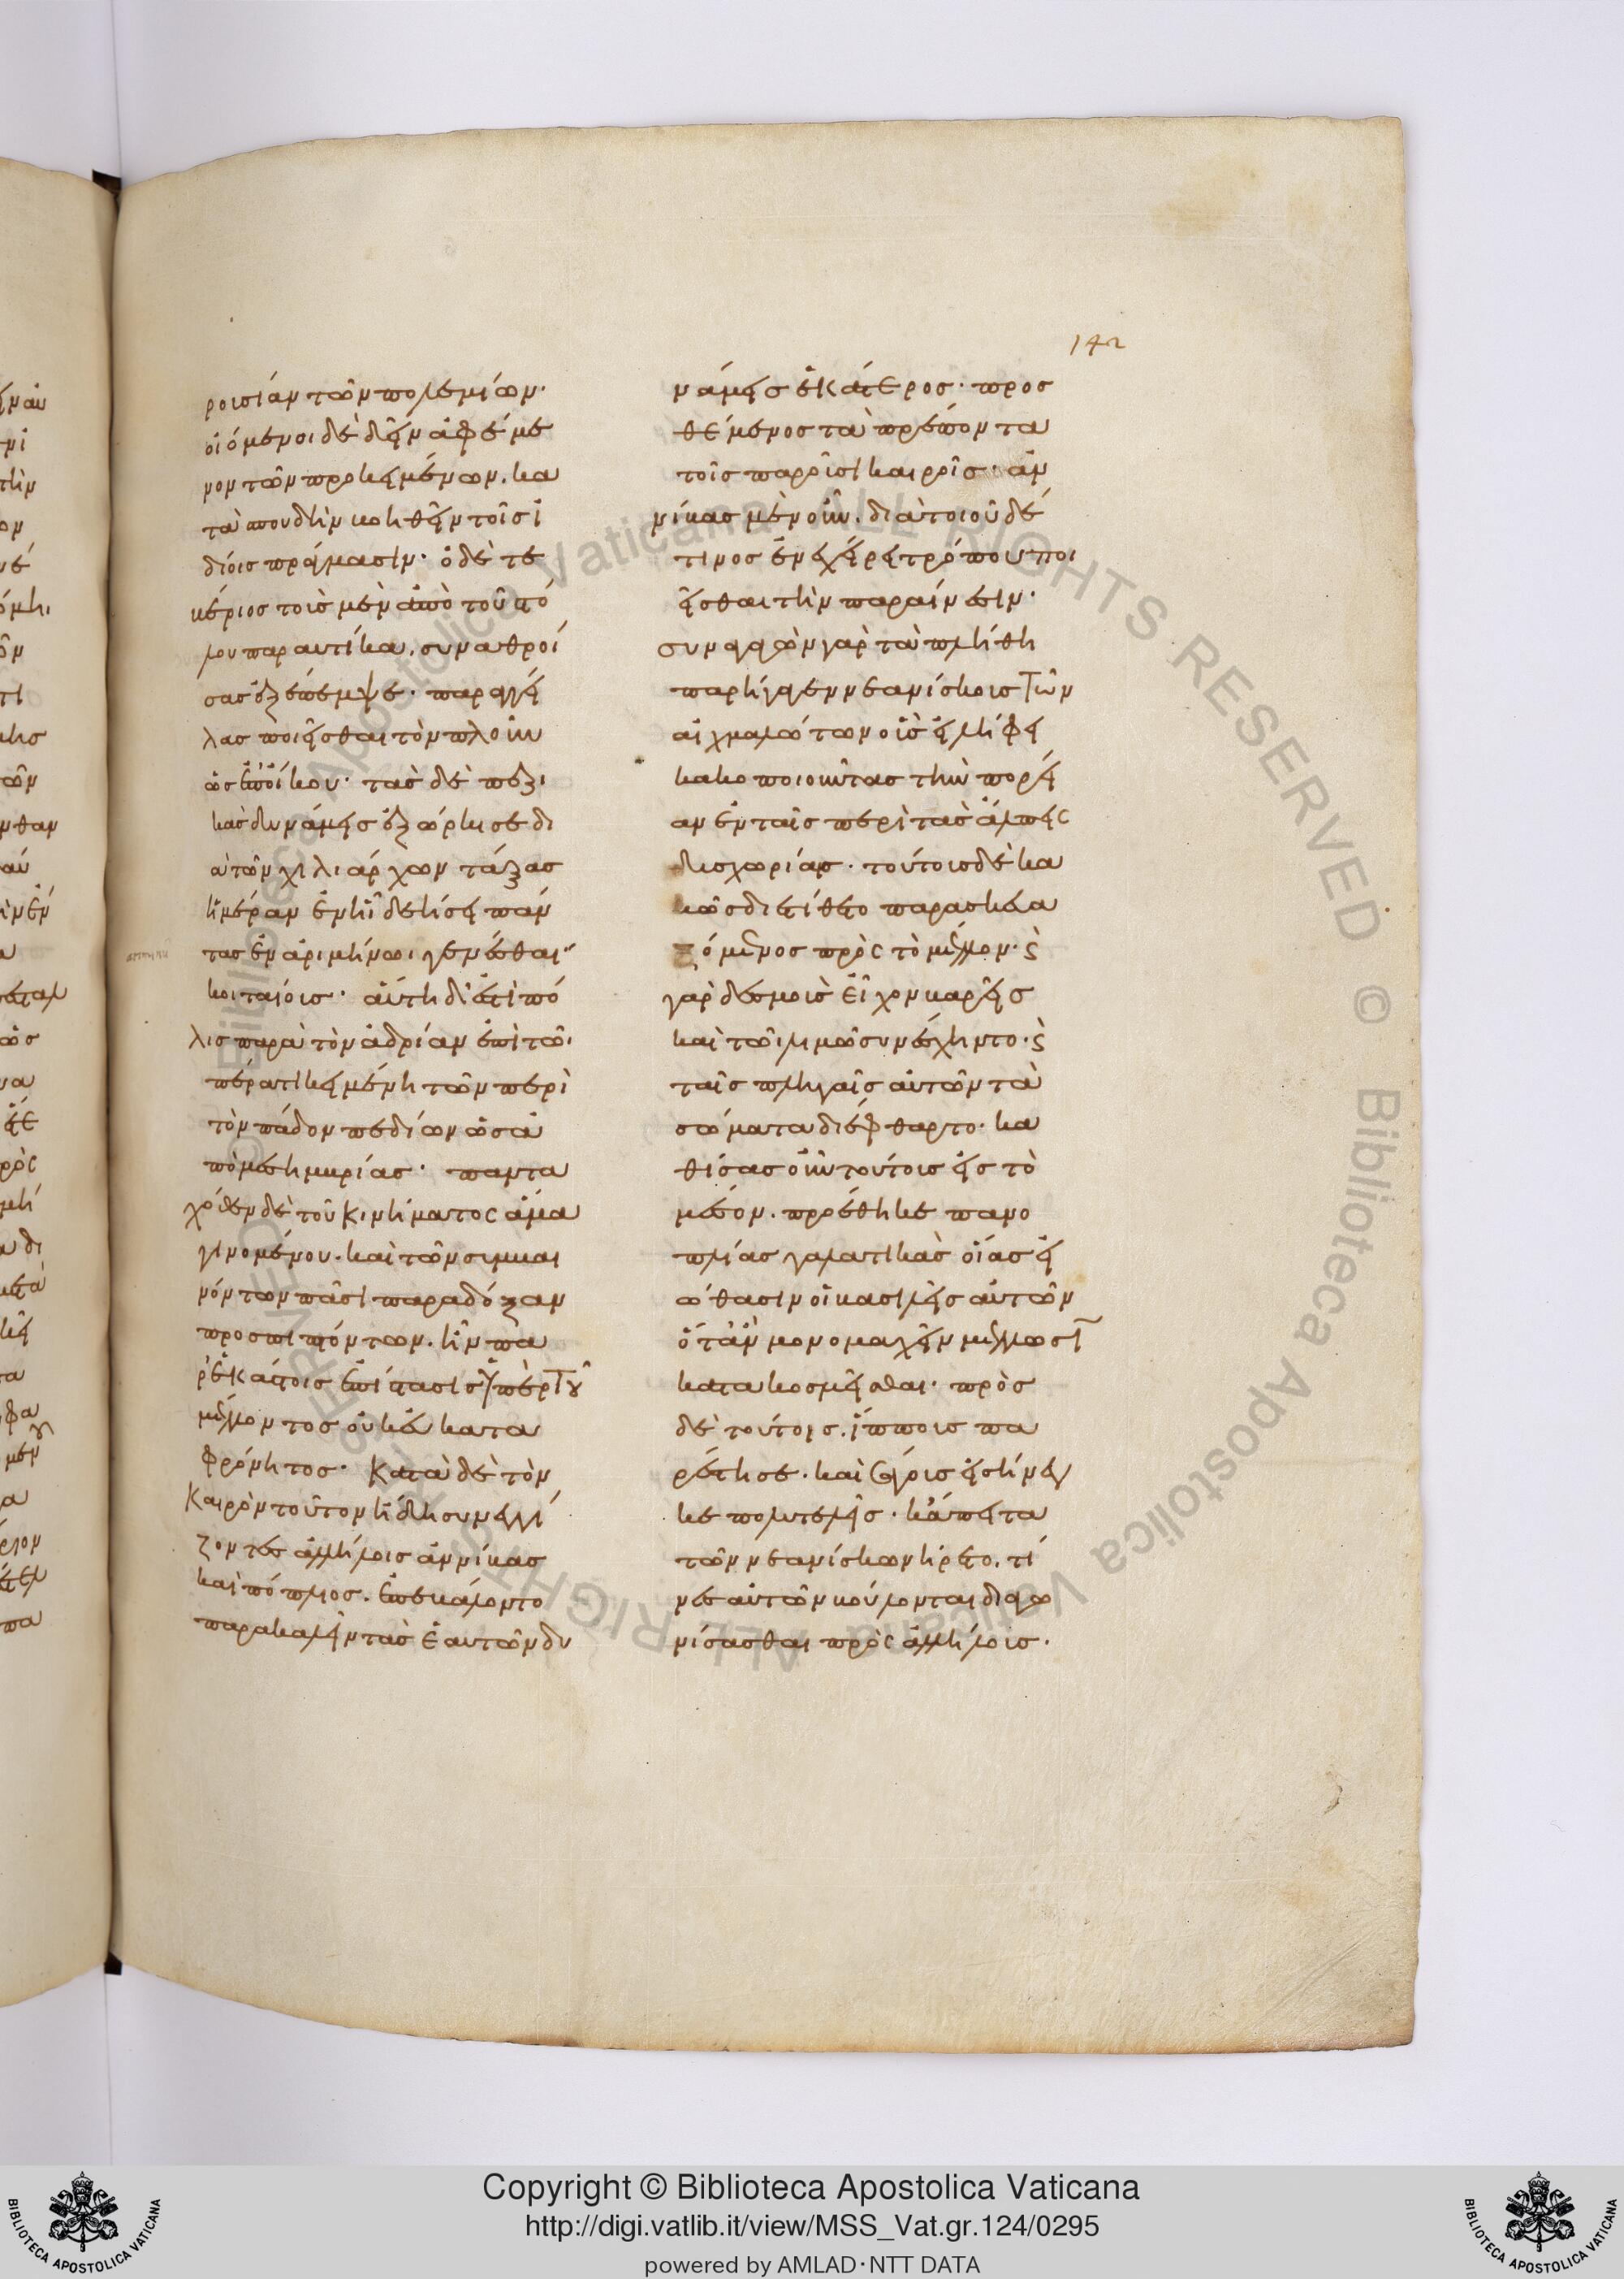 142
ρουσίαν τῶν πολεμίων·
οἰόμενοι δὲ δεῖν ἀφεμέ
νον τῶν προκειμένων. κα
τὰ σπουδὴν βοηθεῖν τοῖς ἰ
δίοις πράγμασιν· ὁ δὲ τε
βέριος τοὺς μὲν ἀπὸ τοῦ στό
λου παραυτίκα. συναθροί
σας ἐξέπεμψε· παραγγεί
λας ποιεῖσθαι τὸν πλοῦν
ὡς ἐπ' οἴκου· τὰς δὲ πεζι
κὰς δυνάμεις ἐξώρκισε δι
ὰ τῶν χιλιάρχων τάξας
ἡμέραν ἐν ᾗ δεήσει πάν
τας ἐν ἀριμήνωι γενέσθαι
κοιταίους· αὕτη δ' ἔστι πό
λις παρὰ τὸν ἀδρίαν ἐπὶ τῶι
πέρατι κειμένη τῶν περὶ
τὸν πάδον πεδίων ὡς ἀ
πὸ μεσημβρίας· παντα
χόθεν δὲ τοῦ κινήματος ἅμα
γινομένου. καὶ τῶν συμβαι
νόντων πᾶσι παραδόξων
προσπιπτόντων. ἦν πα
ρ' ἑκάστοις ἐπίστασις ὑπὲρ τοῦ
μέλλοντος οὐκ εὐκατα
φρόνητος· Κατὰ δὲ τὸν
Καιρὸν τοῦτον ἤδη συνεγγί
ζοντες ἀλλήλοις ἀννίβας
καὶ πόπλιος. ἐπεβάλοντο
παρακαλεῖν τὰς ἑαυτῶν δυ
νάμεις ἑκάτερος· προς
θέμενος τὰ πρέποντα
τοῖς παροῦσι καιροῖς· ἀν
νίβας μὲν οὖν. διὰ τοιοῦδέ
τινος ἐνεχείρει τρόπου ποι
εῖσθαι τὴν παραίνεσιν·
συναγαγὼν γὰρ τὰ πλήθη
παρήγαγεν νεανίσκους τῶν
αἰχμαλώτων οὓς εἰλήφει
κακοποιοῦντας τὴν πορεί
αν ἐν ταῖς περὶ τὰς ἄλπεις
δυσχωρίαις· τούτους δὲ κα
κῶς διετίθετο παρασκευα
ζόμενος πρὸς τὸ μέλλον· ϛ
γὰρ δεσμοὺς εἶχον βαρεῖς
καὶ τῶι λιμῶ συνέσχηντο· ϛ
ταῖς πληγαῖς αὐτῶν τὰ
σώματα διέφθαρτο· κα
θίσας οὖν τούτους εἰς τὸ
μέσον. προέθηκε πανο
πλίας γαλατικὰς οἵαις εἰ
ώθασιν οἱ βασιλεῖς αὐτῶν
ὅταν μονομαχεῖν μέλλωσι
κατακοσμεῖσθαι· πρὸς
δὲ τούτοις. ἵππους πα
ρέστησε. καὶ σάγους εἰσήνεγ
κε πολυτελεῖς· κἄπειτα
τῶν νεανίσκων ἤρετο. τί
νες αὐτῶν βούλονται διαγω
νίσασθαι πρὸς ἀλλήλους·
Copyright © Biblioteca Apostolica Vaticana
http://digi.vatlib.it/view/MSS_Vat.gr.124/0295
powered by AMLAD·NTT DATA